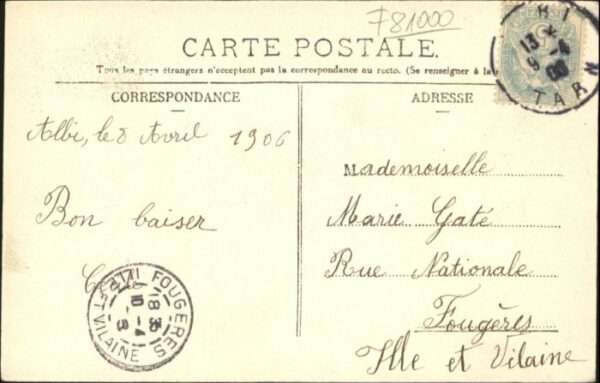 F81000
CARTE POSTALE.
Tous les pays étrangers n'acceptent pas la correspondance au recto. (Se renseigner à la
CORRESPONDANCE
ADRESSE
Albi, le 8 Avril 1906
Bon baiser
Mademoiselle
Marie Gaté
Rue Nationale
Fougères
Ille et Vilaine
BI
13
9 -4
06
TARN
FOUGERES
18 35
10 -4
ET VILAINE